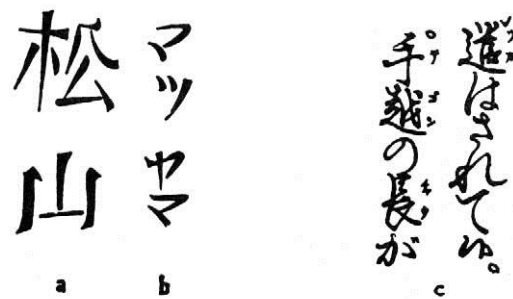 松山
マツヤマ
遣はされて候。
手越の長が
a
b
c